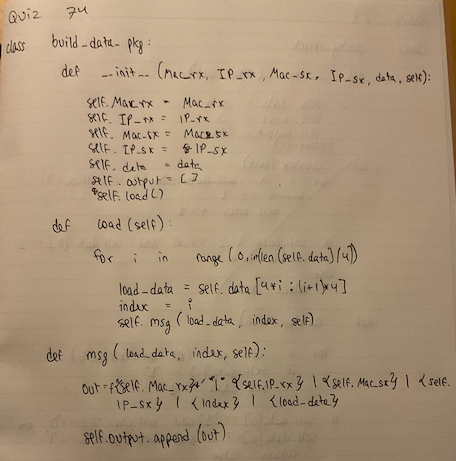 Quiz 74
class build_data_pkg:
def __init__ (Mac_rx, IP_rx, Mac_sx, IP_sx, data, self):
self.Mac_rx = Mac_rx
self.IP_rx = IP_rx
self.Mac_sx = Mac_sx
self.IP_sx = IP_sx
self.data = data
self.output = []
self.load()
def load (self):
for i in range (0, int(len(self.data)/4))
load_data = self.data [4*i : (i+1)*4]
index = i
self.msg (load_data, index, self)
def msg (load_data, index, self):
out = f{self.Mac_rx} "|" {self.IP_rx} | {self.Mac_sx} | {self.
IP_sx} | {index} | {load_data}
self.output.append (out)